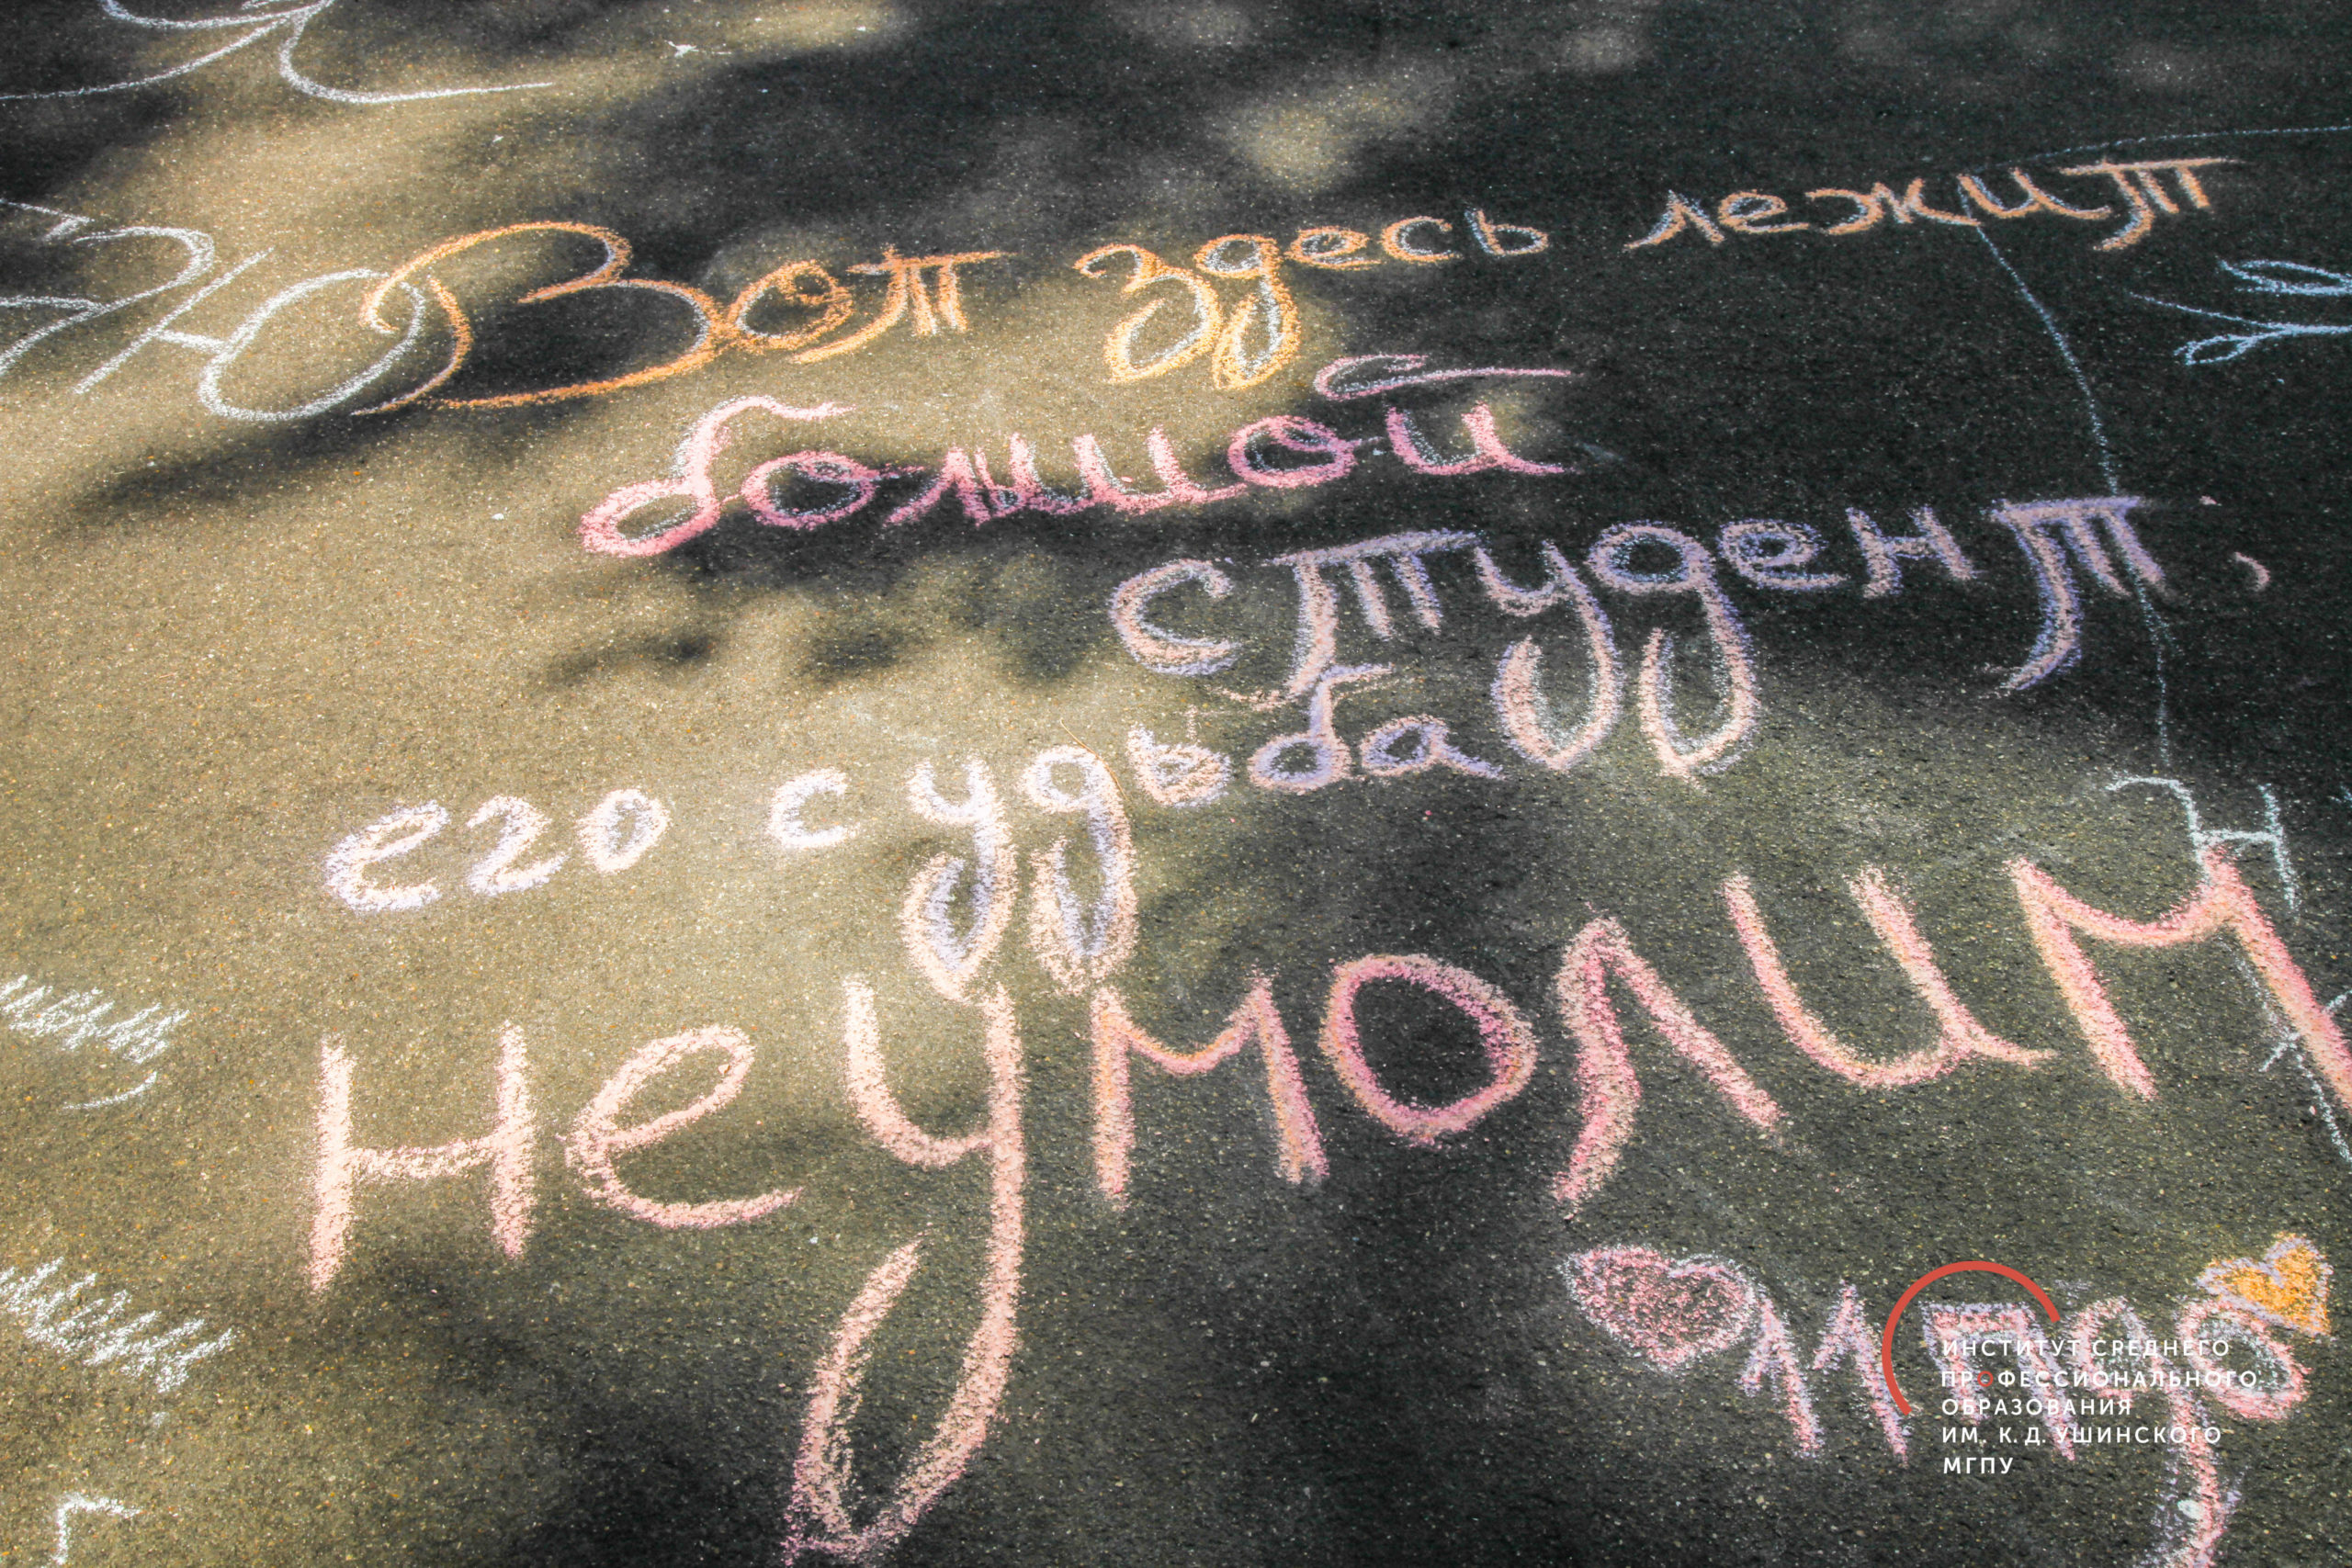 Ю
Вот здесь лежит
болной
студент,
его судьба
неумолим
11пдо
ИНСТИТУТ СРЕДНЕГО
ПРОФЕССИОНАЛЬНОГО
ОБРАЗОВАНИЯ
ИМ. К.Д. УШИНСКОГО
МГПУ